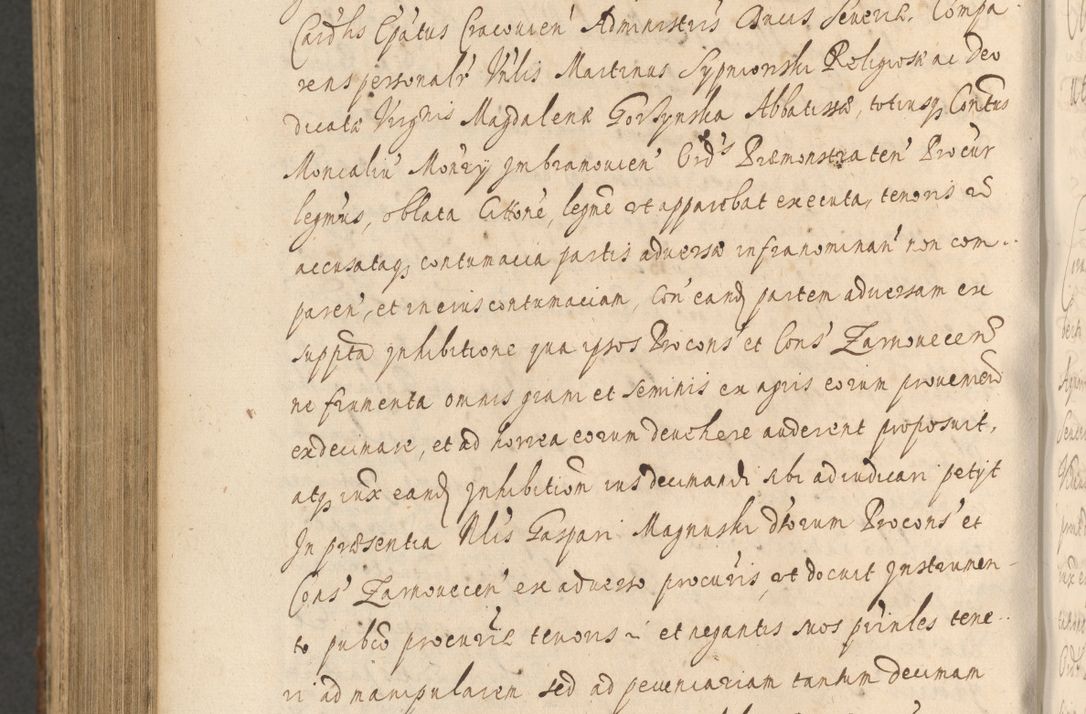 Cardlis Epātus Cracovien' Administris Ducis Severiæ. Compa-
rens personalr Nlis Martinus Sypniowski Religiosæ ac Deo
dicatæ Virgnis Magdalenæ Gorzynska Abbatissæ, totiusq, Contus
Monialiu' Monry Imbramovicen' Ord's Præmonstraten' Procur
legmus, oblata Cittone, legme ut apparebat executa, tenoris
accusataq, contumacia partis adversæ infranominan' non com-
paren', et in eius contumaciam, Con' eand partem adversam ex
suppta Inhibitione qua ipsos Procons' et Cons' Zarnovecens
ne frumenta omnis grani et seminis ex agris eorum proveniend
exdecimare, et ad horrea eorum devehere auderent proposuit,
atq iux eand Inhibitiom ius decimandi sibi adiudicari petijt
In præsentia Nlis Gaspari Magnuski dtorum Procons' et
Cons' Zarnovecen' ex adverso procuris, ut docuit Instrumen-
to pubco procuriæ tenoris et negantis suos prinles tene-
ri ad manipularem sed ad pecuniariam tantum decimam